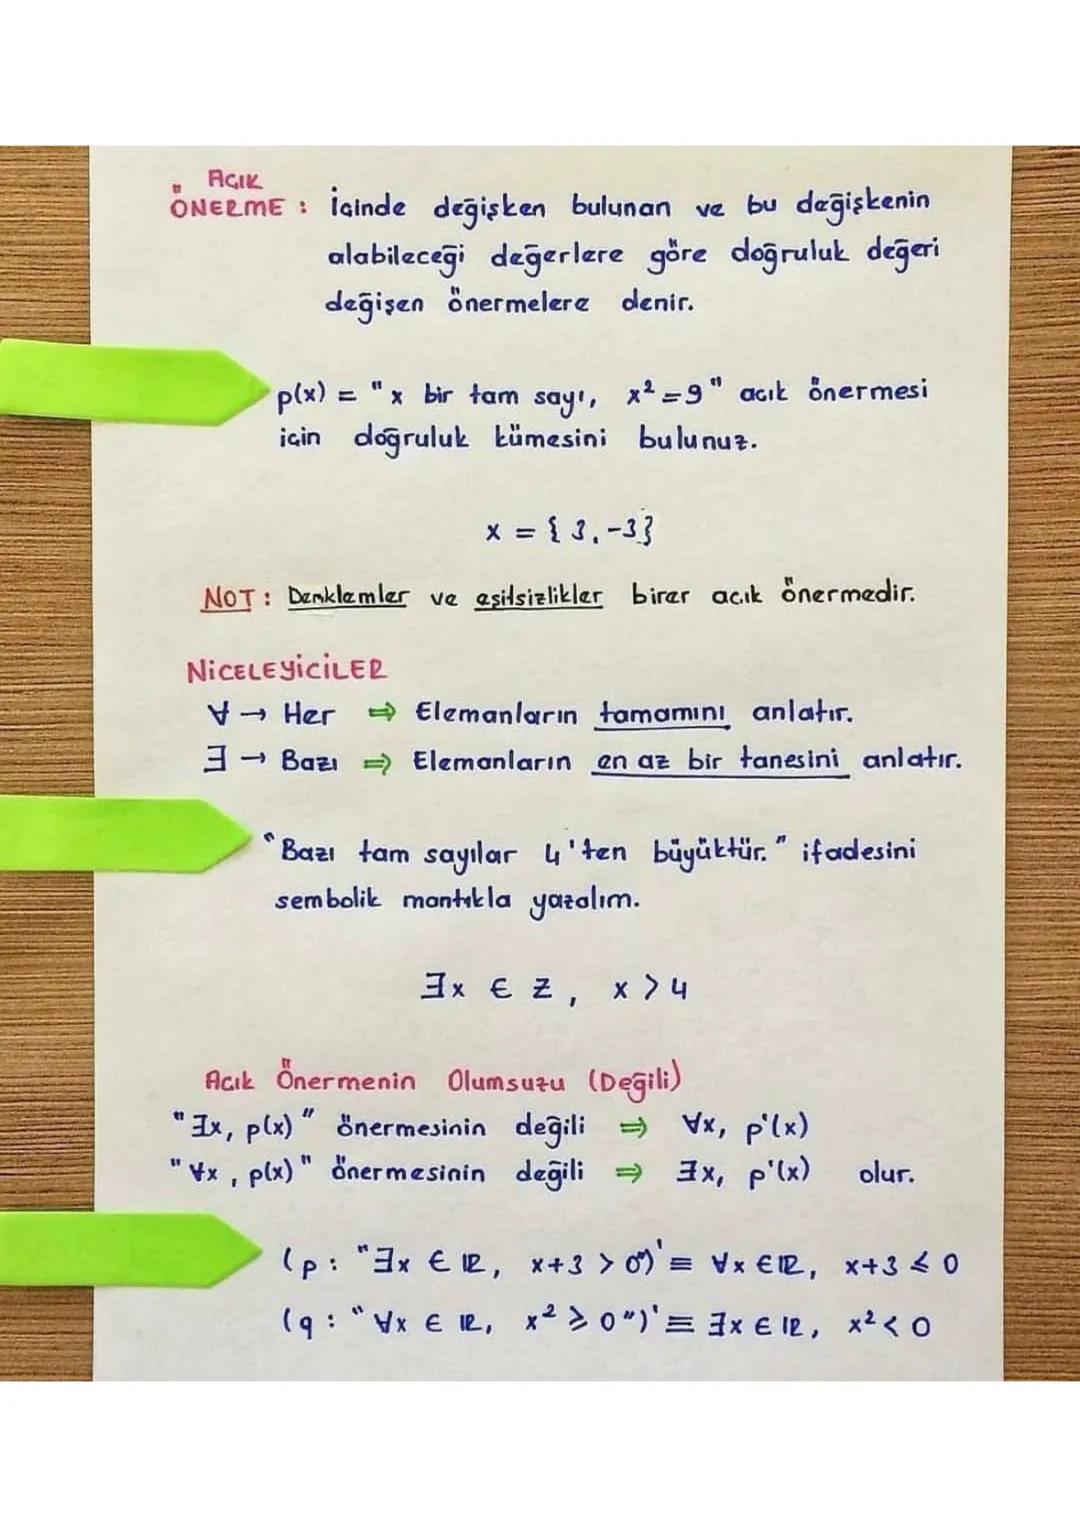 AÇIK
ÖNERME : İçinde değişken bulunan ve bu değişkenin
alabileceği değerlere göre doğruluk değeri
değişen önermelere denir.
p(x) = "x bir tam sayı, x² = 9" açık önermesi
için doğruluk kümesini bulunuz.
x = { 3, -3}
NOT : Denklemler ve eşitsizlikler birer açık önermedir.
NİCELEYİCİLER
∀ → Her ⇒ Elemanların tamamını anlatır.
∃ → Bazı ⇒ Elemanların en az bir tanesini anlatır.
"Bazı tam sayılar 4'ten büyüktür." ifadesini
sembolik mantıkla yazalım.
∃x ∈ Z, x > 4
Açık Önermenin Olumsuzu (Değili)
"∃x, p(x)" önermesinin değili ⇒ ∀x, p'(x)
"∀x, p(x)" önermesinin değili ⇒ ∃x, p'(x) olur.
(p : "∃x ∈ IR, x+3 > 0")' ≡ ∀x ∈ IR, x+3 ≤ 0
(q : "∀x ∈ IR, x² ≥ 0")' ≡ ∃x ∈ IR, x² < 0